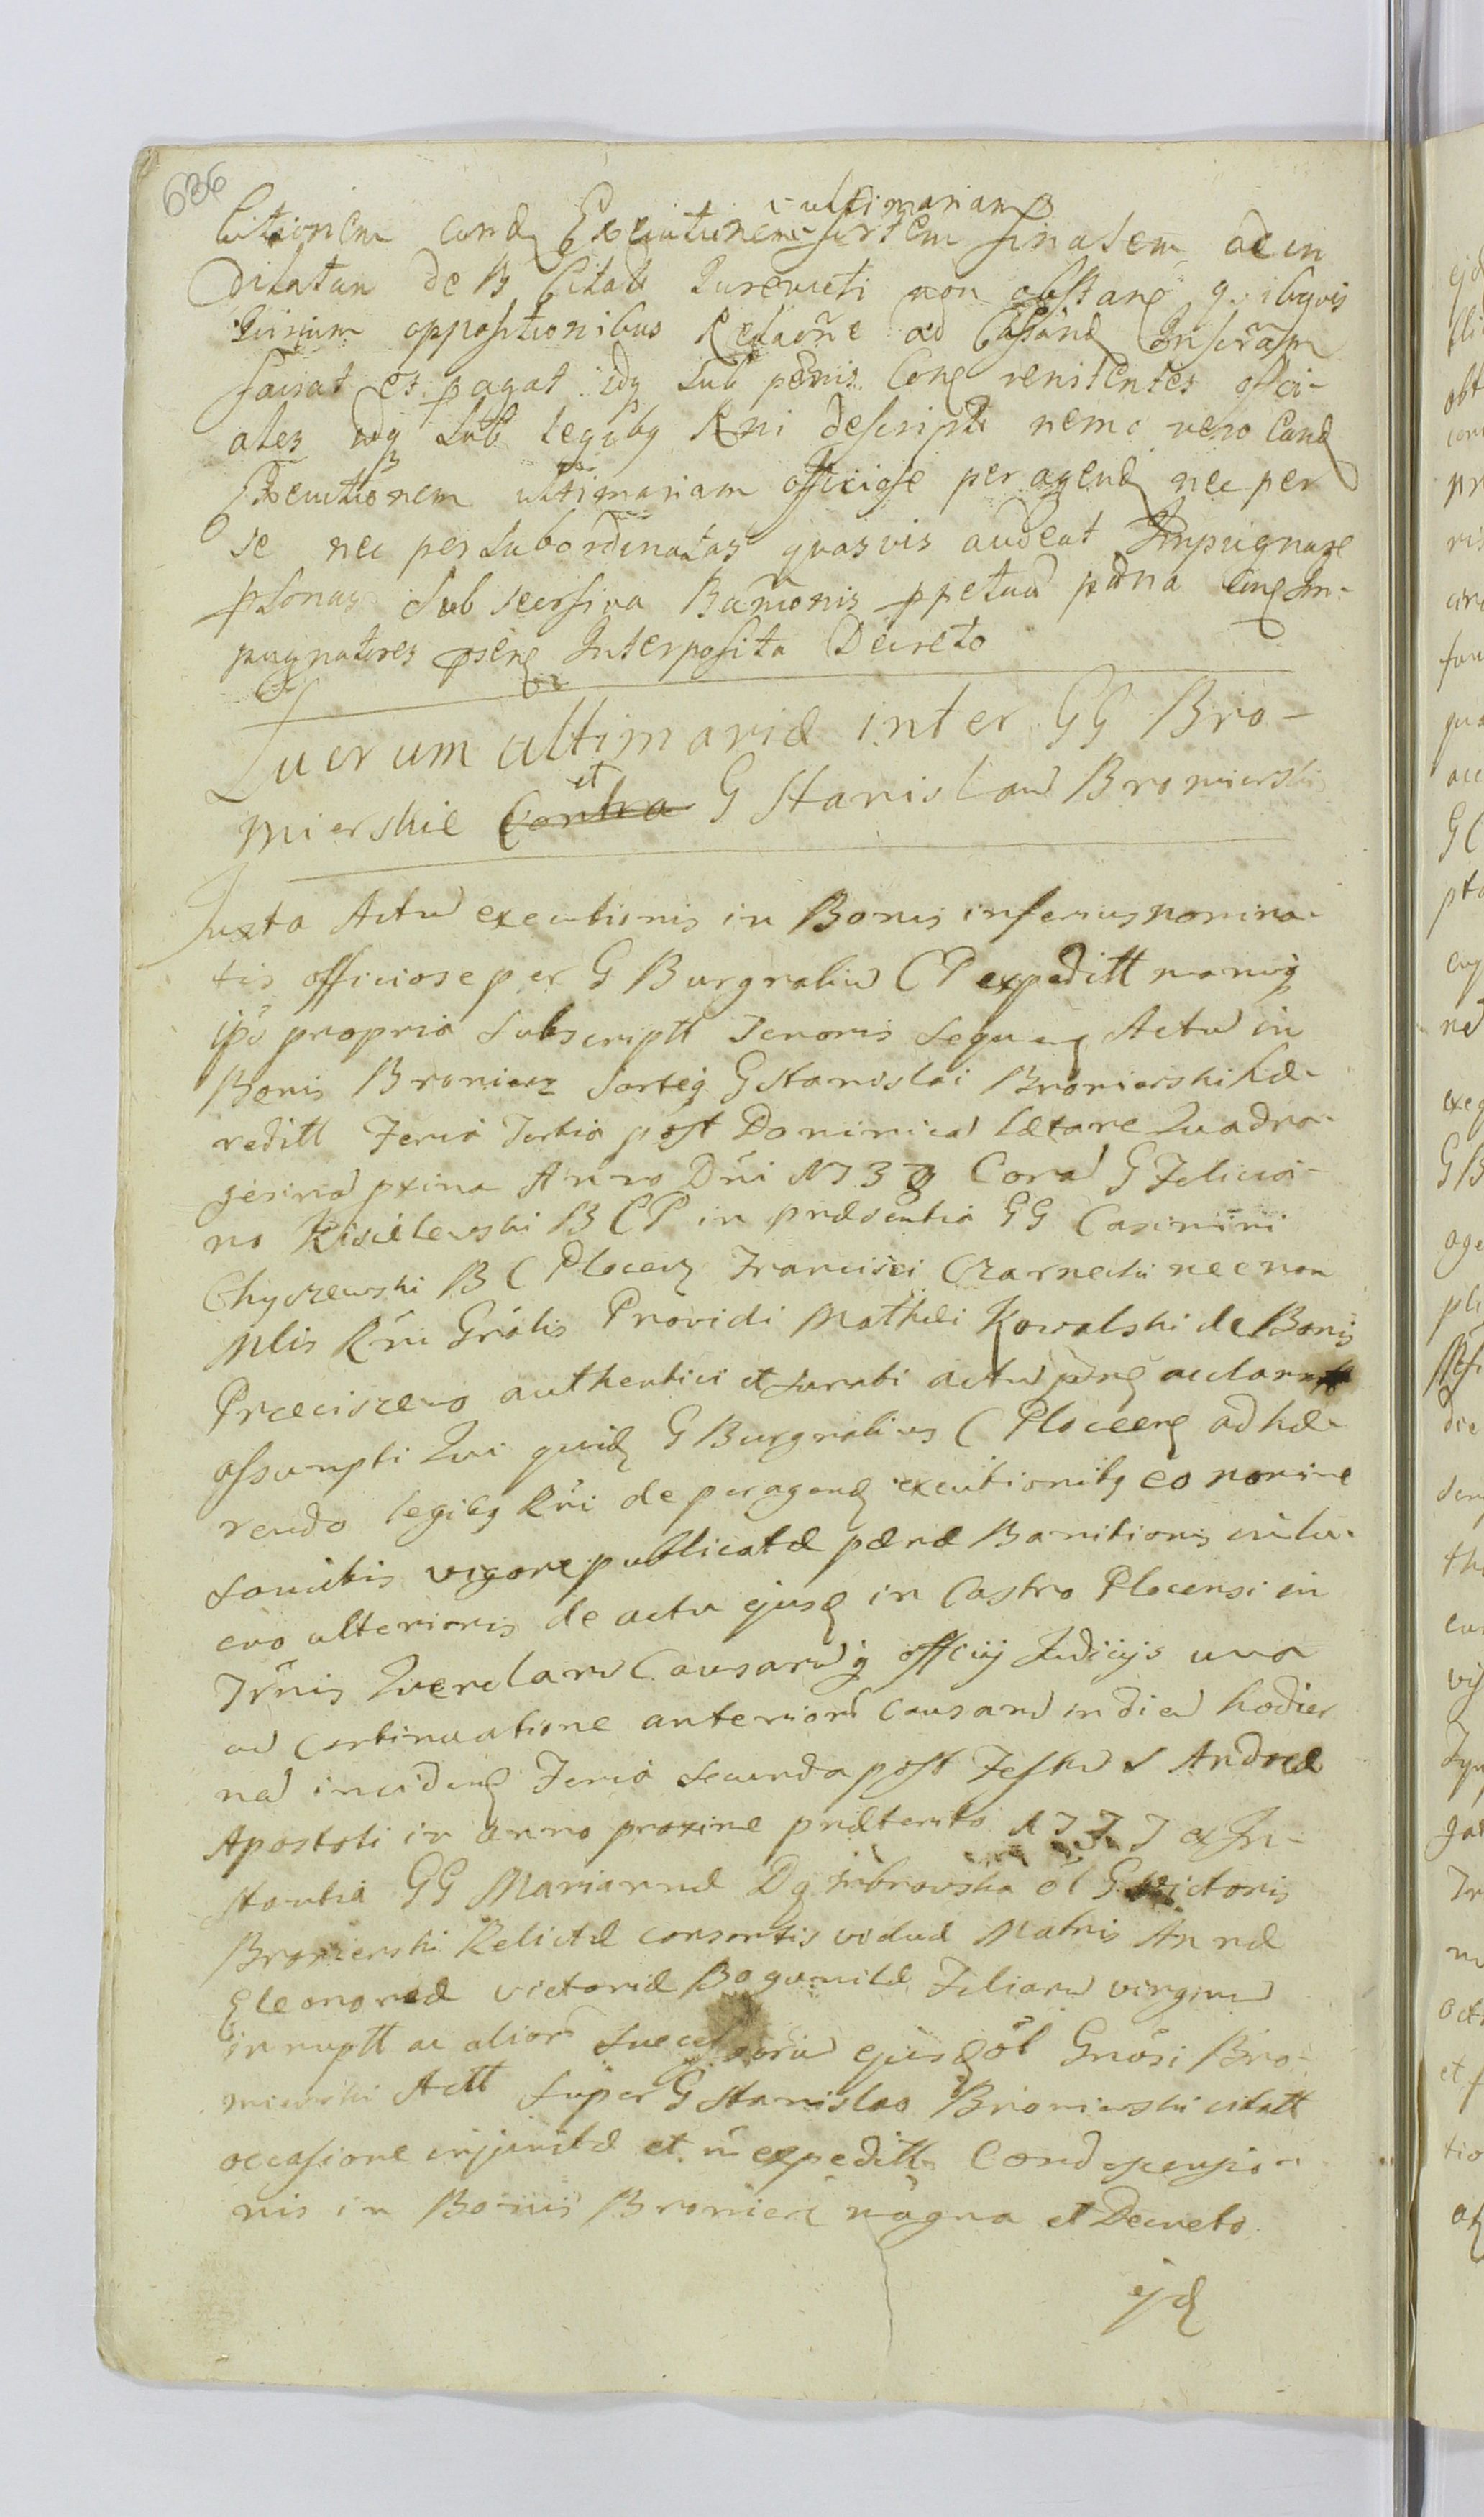 636
ultimariam
cutionem eand Executionem sortem finalem ac in
Dilatam de B Citat Jurevicti non obstan quibusvis
Jurium oppositionibus Relaõne ad Cassand
faciat et pagat idq sub pœnis Conq renitentes offici-
ales idq Sub legibq Rni descript nemo vero Eand
Executionem ultimariam officiose peragend nec per
se nec per Subordinatas quasvis audeat Impugnare
psonas Sub secessiva Bannõnis ppetua pœna Im-
pugnatores psenq Interposita Decreto
Lucrum ultimariæ inter GG Bro-
et
mierskie Contra G Stanislaum Bromierski
Juxta Actum executionis in Bonis inferius nomina-
tis officiose per G Burgrabiu CP expeditt manuq
ipo propria Subscriptt Tenoris Sequenq Actu in
Bonis Bromierz sorteq G Stanislai Bromierski hæ-
reditt Feria Tertia post Dominica Lætare Quadra-
gesima pxina Anno Dni 1738 Cora G Felicia-
no Kisielewski B CP in præsentia GG Casimiri
Chyczewski B C Plocen Francisci Czarnecki necnon
Mlis Rni Grãlis Providi Mathæi Kowalski de Bonis
Præciszewo authentici et Jurati actu
assumpti Qui quid G Burgrabius C Plocen adhæ-
rendo legibq Rni de peragend executionibq eo nomine
sancitis vigore publicatæ pœnæ Banitionis in lu-
cro ulterioris de actu ejusd in Castro Plocensi in
Trnis Querelaru Causaruq officij Judicijs una
ad Continuatione anterioru Causaru in diem hodier
na incidenq Feria Secunda post Festu S Andreæ
Apostoli in anno proxime præterito 1737 ex In-
stantia GG Mariannæ Dąmbrowska ol G Victoris
Bromierski Relictæ consortis viduæ Matris Annæ
Eleonoræ Victoriæ Bogumilæ Filiaru virginu
innuptt ac alior Successoru ejusd ol Gnosi Bro-
mierski Actt Super G Stanislao Bromierski citatt
occasione injunctæ et n expeditt Condescensio-
nis in Bonis Bromierz magna et Decreto
ejd